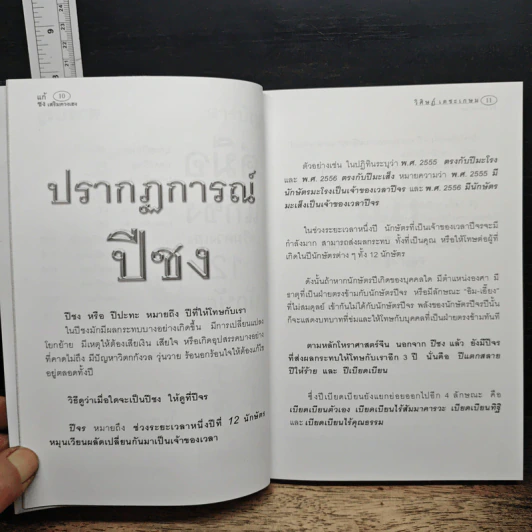 9
แก้
ชง เสริมดวงเฮง
10
ปรากฏการณ์
ปีชง
ปีชง หรือ ปีปะทะ หมายถึง ปีที่ให้โทษกับเรา
ในปีชงมักมีผลกระทบบางอย่างเกิดขึ้น มีการเปลี่ยนแปลง
โยกย้าย มีเหตุให้ต้องเสียเงิน เสียใจ หรือเกิดอุปสรรคบางอย่าง
ที่คาดไม่ถึง มีปัญหาวิตกกังวล วุ่นวาย ร้อนอกร้อนใจให้ต้องแก้ไข
อยู่ตลอดทั้งปี
วิธีดูว่าเมื่อใดจะเป็นปีชง ให้ดูที่ปีจร
ปีจร หมายถึง ช่วงระยะเวลาหนึ่งปีที่ 12 นักษัตร
หมุนเวียนผลัดเปลี่ยนกันมาเป็นเจ้าของเวลา
วิศิษฏ์ เตชะเกษม
11
ตัวอย่างเช่น ในปฏิทินระบุว่า พ.ศ. 2555 ตรงกับปีมะโรง
และ พ.ศ. 2556 ตรงกับปีมะเส็ง หมายความว่า พ.ศ. 2555 มี
นักษัตรมะโรงเป็นเจ้าของเวลาปีจร และ พ.ศ. 2556 มีนักษัตร
มะเส็งเป็นเจ้าของเวลาปีจร
ในช่วงระยะเวลาหนึ่งปี นักษัตรที่เป็นเจ้าของเวลาปีจรจะมี
กำลังมาก สามารถส่งผลกระทบ ทั้งที่เป็นคุณ หรือให้โทษต่อผู้ที่
เกิดในปีนักษัตรต่าง ๆ ทั้ง 12 นักษัตร
ดังนั้นถ้าหากนักษัตรปีเกิดของบุคคลใด มีตำแหน่งองศา มี
ธาตุที่เป็นฝ่ายตรงข้ามกับนักษัตรปีจร หรือมีลักษณะ "อิม-เอี๊ยง"
ที่ไม่สมดุลย์ เข้ากันไม่ได้กับนักษัตรปีจร พลังของนักษัตรปีจรปีนั้น
ก็จะแสดงบทบาทที่ข่มและให้โทษกับบุคคลที่เป็นฝ่ายตรงข้ามทันที
ตามหลักโหราศาสตร์จีน นอกจาก ปีชง แล้ว ยังมีปีจร
ที่ส่งผลกระทบให้โทษกับเราอีก 3 ปี นั่นคือ ปีแตกสลาย
ปีให้ร้าย และ ปีเบียดเบียน
ซึ่งปีเบียดเบียนยังแยกย่อยออกไปอีก 4 ลักษณะ คือ
เบียดเบียนตัวเอง เบียดเบียนไร้สัมมาคารวะ เบียดเบียนทิฐิ
และ เบียดเบียนไร้คุณธรรม